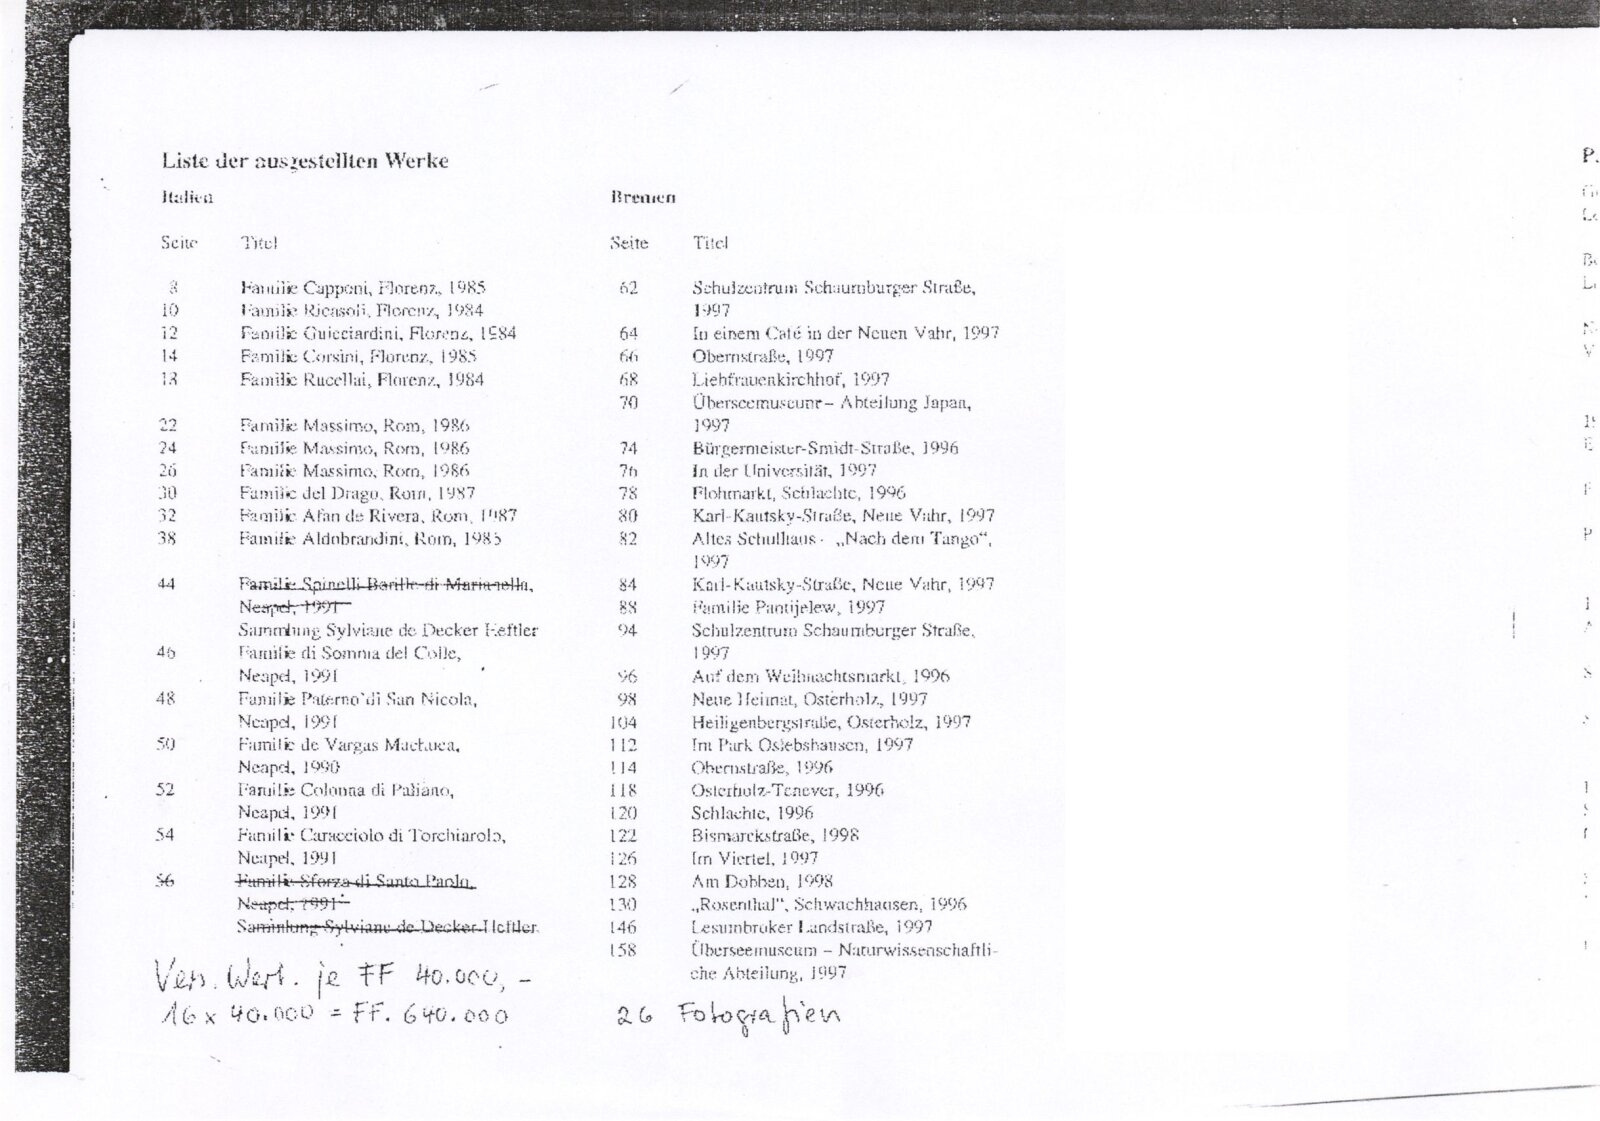 Liste der ausgestellten Werke
Italien
Seite Titel
8 Familie Capponi, Florenz, 1985
10 Familie Ricasoli, Florenz, 1984
12 Familie Guicciardini, Florenz, 1984
14 Familie Corsini, Florenz, 1985
18 Familie Rucellai, Florenz, 1984
22 Familie Massimo, Rom, 1986
24 Familie Massimo, Rom, 1986
26 Familie Massimo, Rom, 1986
30 Familie del Drago, Rom, 1987
32 Familie Afan de Rivera, Rom, 1987
38 Familie Aldobrandini, Rom, 1985
44 Familie Spinelli Barille di Marianella,
Neapel, 1991
Sammlung Sylviane de Decker Heftler
46 Familie di Somma del Colle,
Neapel, 1991
48 Familie Paterno di San Nicola,
Neapel, 1991
50 Familie de Vargas Machuca,
Neapel, 1990
52 Familie Colonna di Paliano,
Neapel, 1991
54 Familie Caracciolo di Torchiarolo,
Neapel, 1991
56 Familie Sforza di Santo Paolo,
Neapel, 1991
Sammlung Sylviane de Decker Heftler
Vers. Wert. je FF 40.000,-
16 x 40.000 = FF. 640.000
Bremen
Seite Titel
62 Schulzentrum Schaumburger Straße,
1997
64 In einem Café in der Neuen Vahr, 1997
66 Obernstraße, 1997
68 Liebfrauenkirchhof, 1997
70 Überseemuseum – Abteilung Japan,
1997
74 Bürgermeister-Smidt-Straße, 1996
76 In der Universität, 1997
78 Flohmarkt, Schlachte, 1996
80 Karl-Kautsky-Straße, Neue Vahr, 1997
82 Altes Schulhaus - „Nach dem Tango“,
1997
84 Karl-Kautsky-Straße, Neue Vahr, 1997
88 Familie Pantijelew, 1997
94 Schulzentrum Schaumburger Straße,
1997
96 Auf dem Weihnachtsmarkt, 1996
98 Neue Heimat, Osterholz, 1997
104 Heiligenbergstraße, Osterholz, 1997
112 Im Park Oslebshausen, 1997
114 Obernstraße, 1996
118 Osterholz-Tenever, 1996
120 Schlachte, 1996
122 Bismarckstraße, 1998
126 Im Viertel, 1997
128 Am Dobben, 1998
130 „Rosenthal“, Schwachhausen, 1996
146 Lesumbroker Landstraße, 1997
158 Überseemuseum – Naturwissenschaftli-
che Abteilung, 1997
26 Fotografien